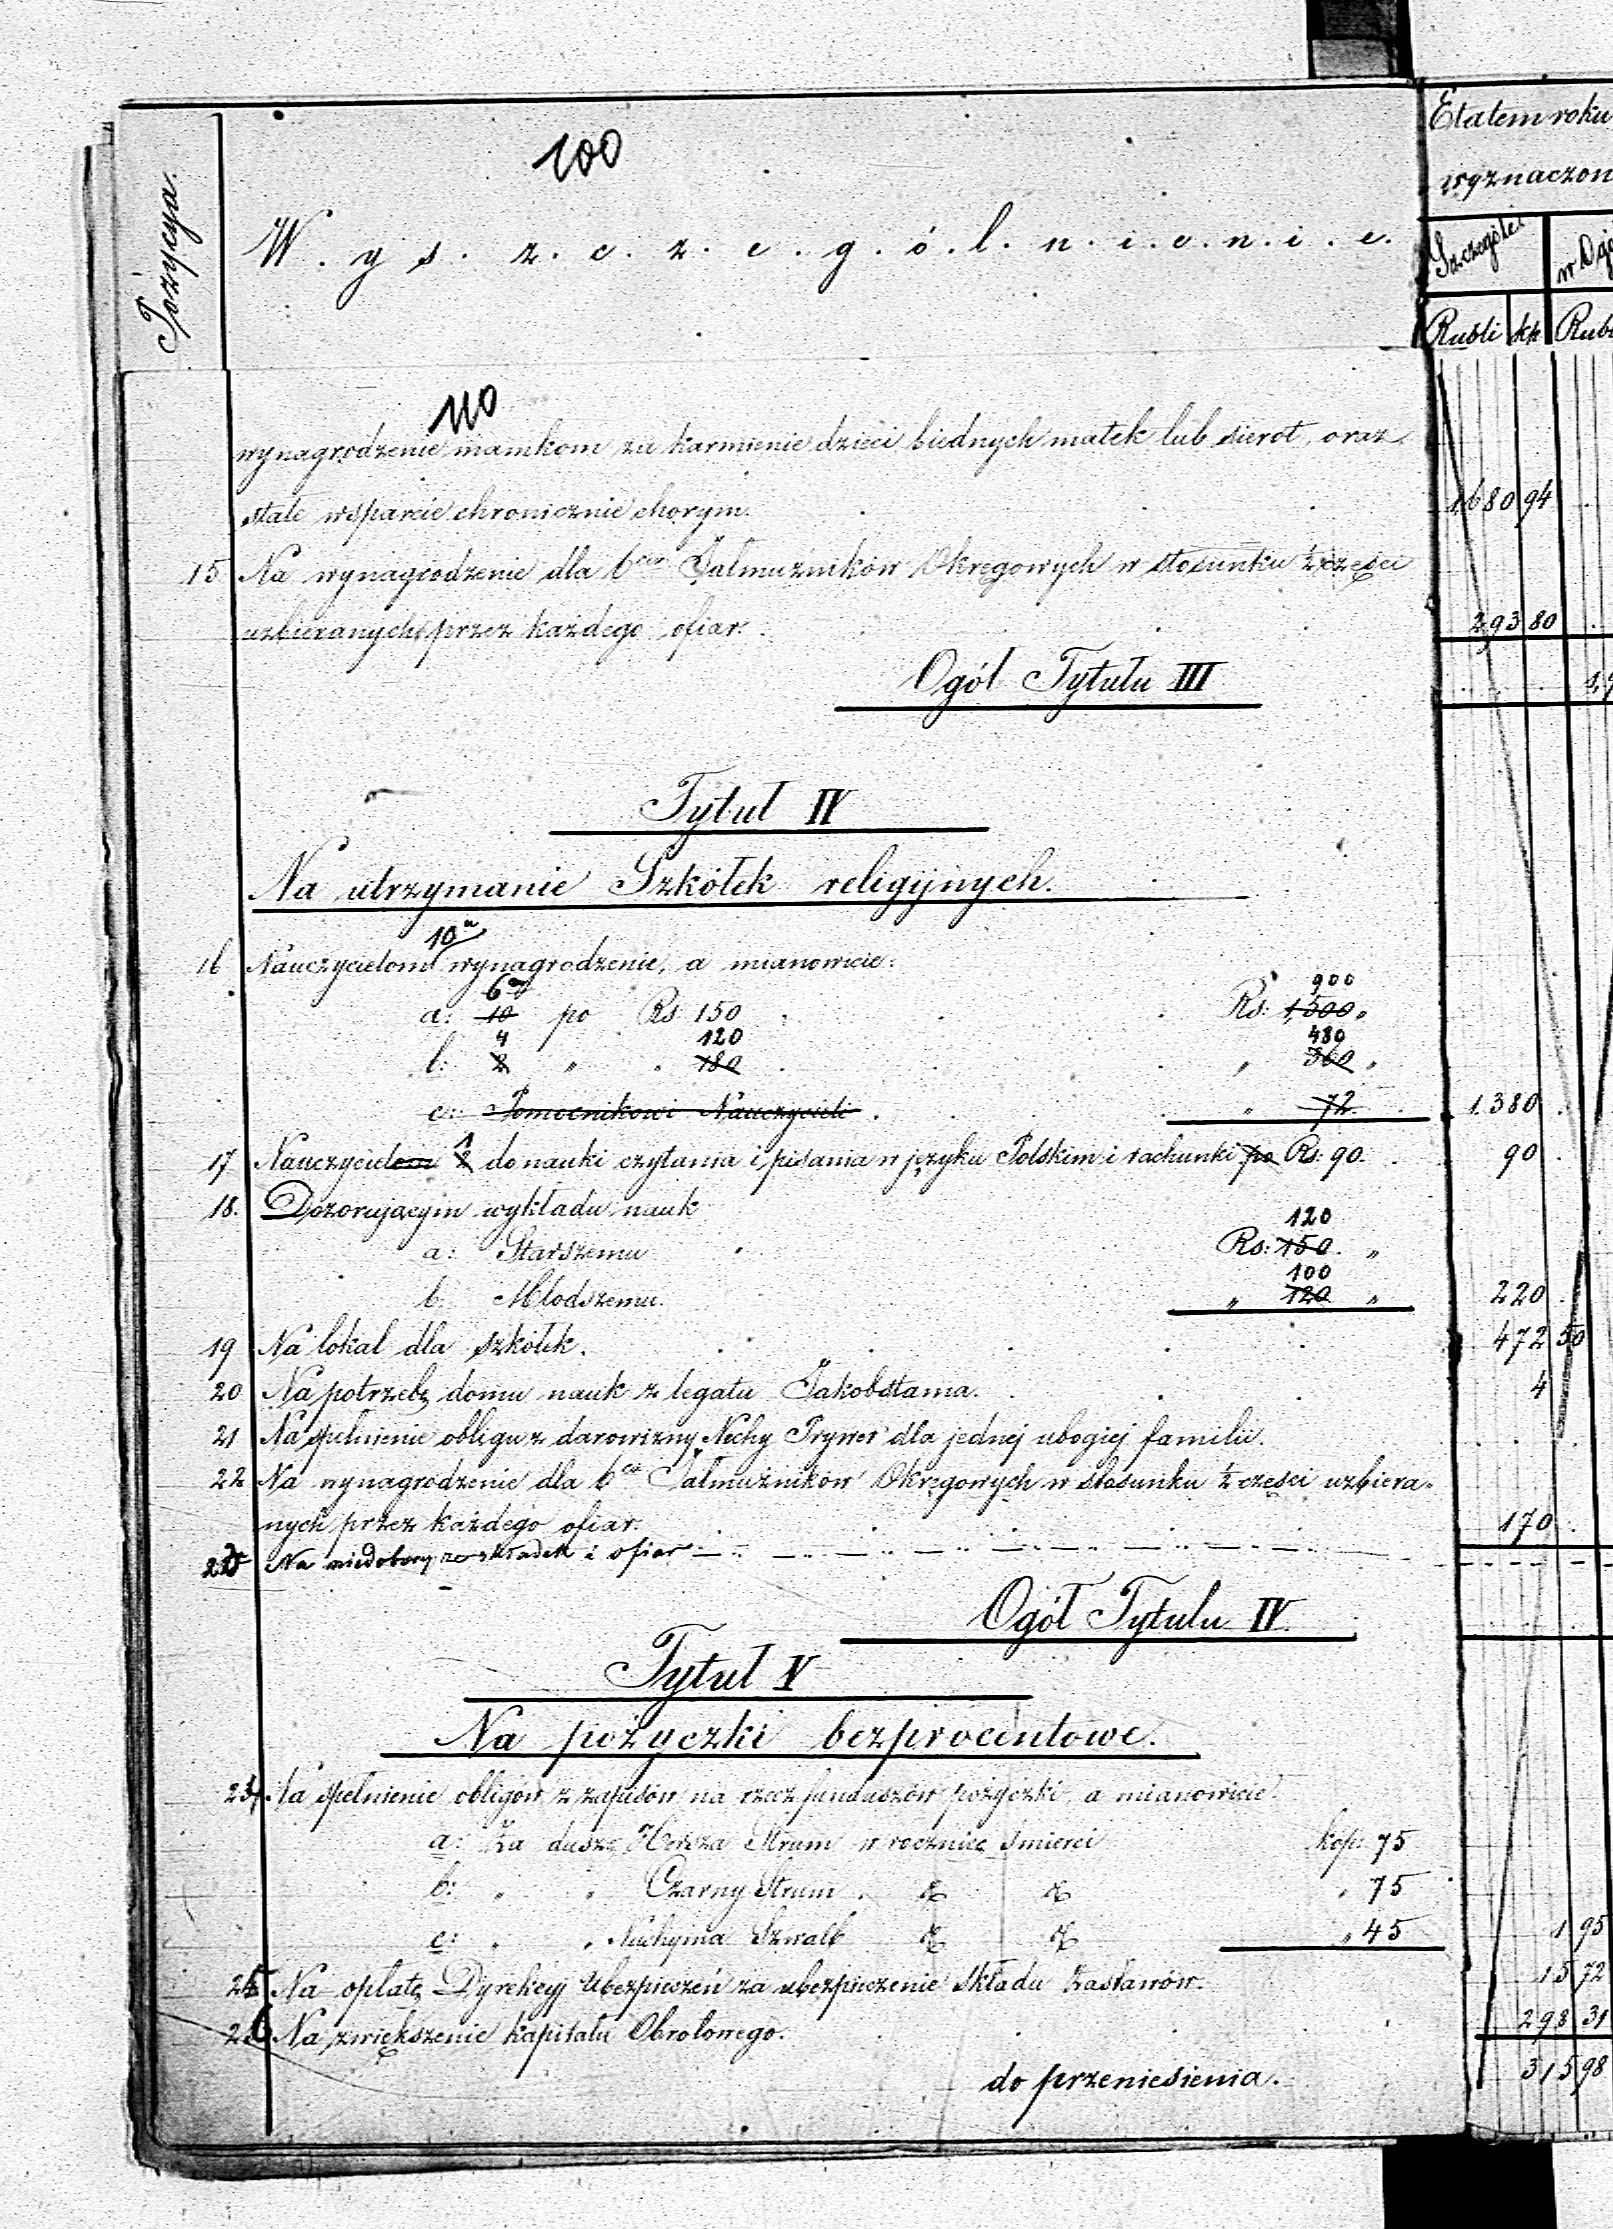 100
Pozycya.
W.y.s.z.c.z.e.g.ó.l.n.i.e.n.i.e.
Etatem roku
wyznaczon
Szczególe
Rubli kk Rub
110
wynagrodzenie mamkom za karmienie dzieci biednych matek lub sierot, oraz
stałe wsparcie chronicznie chorym. 1680 94
15 Na wynagrodzenie dla 6ciu Jałmużników Okręgowych w stosunku ½ części
uzbieranych przez każdego ofiar. 293 80
Ogół Tytułu III
Tytuł IV
Na utrzymanie Szkółek religijnych.
10u
16 Nauczycielom wynagrodzenie, a mianowicie:
6 900
a: 10 po Rs 150 Rs: 1,500 „
4 120 480
b: 2 „ „ 180 „ 360 „
c: Pomocnikowi Nauczycieli „ 72 1.380
1
17 Nauczycielom 2 do nauki czytania i pisania w języku Polskim i rachunki po Rs. 90. 90
18. Dozorującym wykładu nauk
120
a: Starszemu Rs: 150. „
100
b: Młodszemu. „ 120 „ 220
19 Na lokal dla szkółek. 472 50
20 Na potrzebę domu nauk z legatu Jakobstama. 4
21 Na spełnienie obligu z darowizny Nechy Prywes dla jednej ubogiej familii.
22 Na wynagrodzenie dla 6ciu Jałmużników Okręgowych w stosunku ½ części uzbiera-
nych przez każdego ofiar. 170
23 Na niedobory ze składek i ofiar
Ogół Tytułu IV.
Tytuł V
Na pożyczki bezprocentowe.
24 Na spełnienie obligów z zapisów na rzecz funduszów pożyczki, a mianowicie:
a: Za duszę Hersza Strum w rocznicę śmierci kop: 75
b: „ „ Czarny Strum „ 75
c: „ „ Nuchyma Szwalb „ 45 1 95
25 Na opłatę Dyrekcyj Ubezpieczeń za ubezpieczenie składu zastawów. 15 72
26 Na zwiększenie kapitału Obrotowego. 298 31
do przeniesienia. 315 98